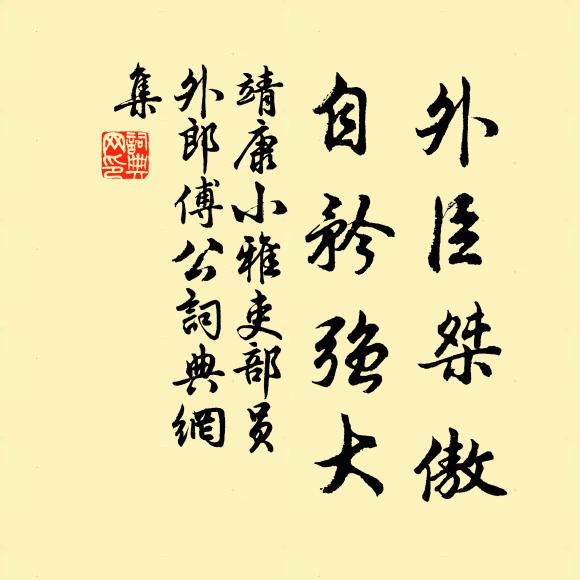 外臣桀傲
自矜強大
靖康小雅吏部员
外郎傅公詞典網
集
詞典網印